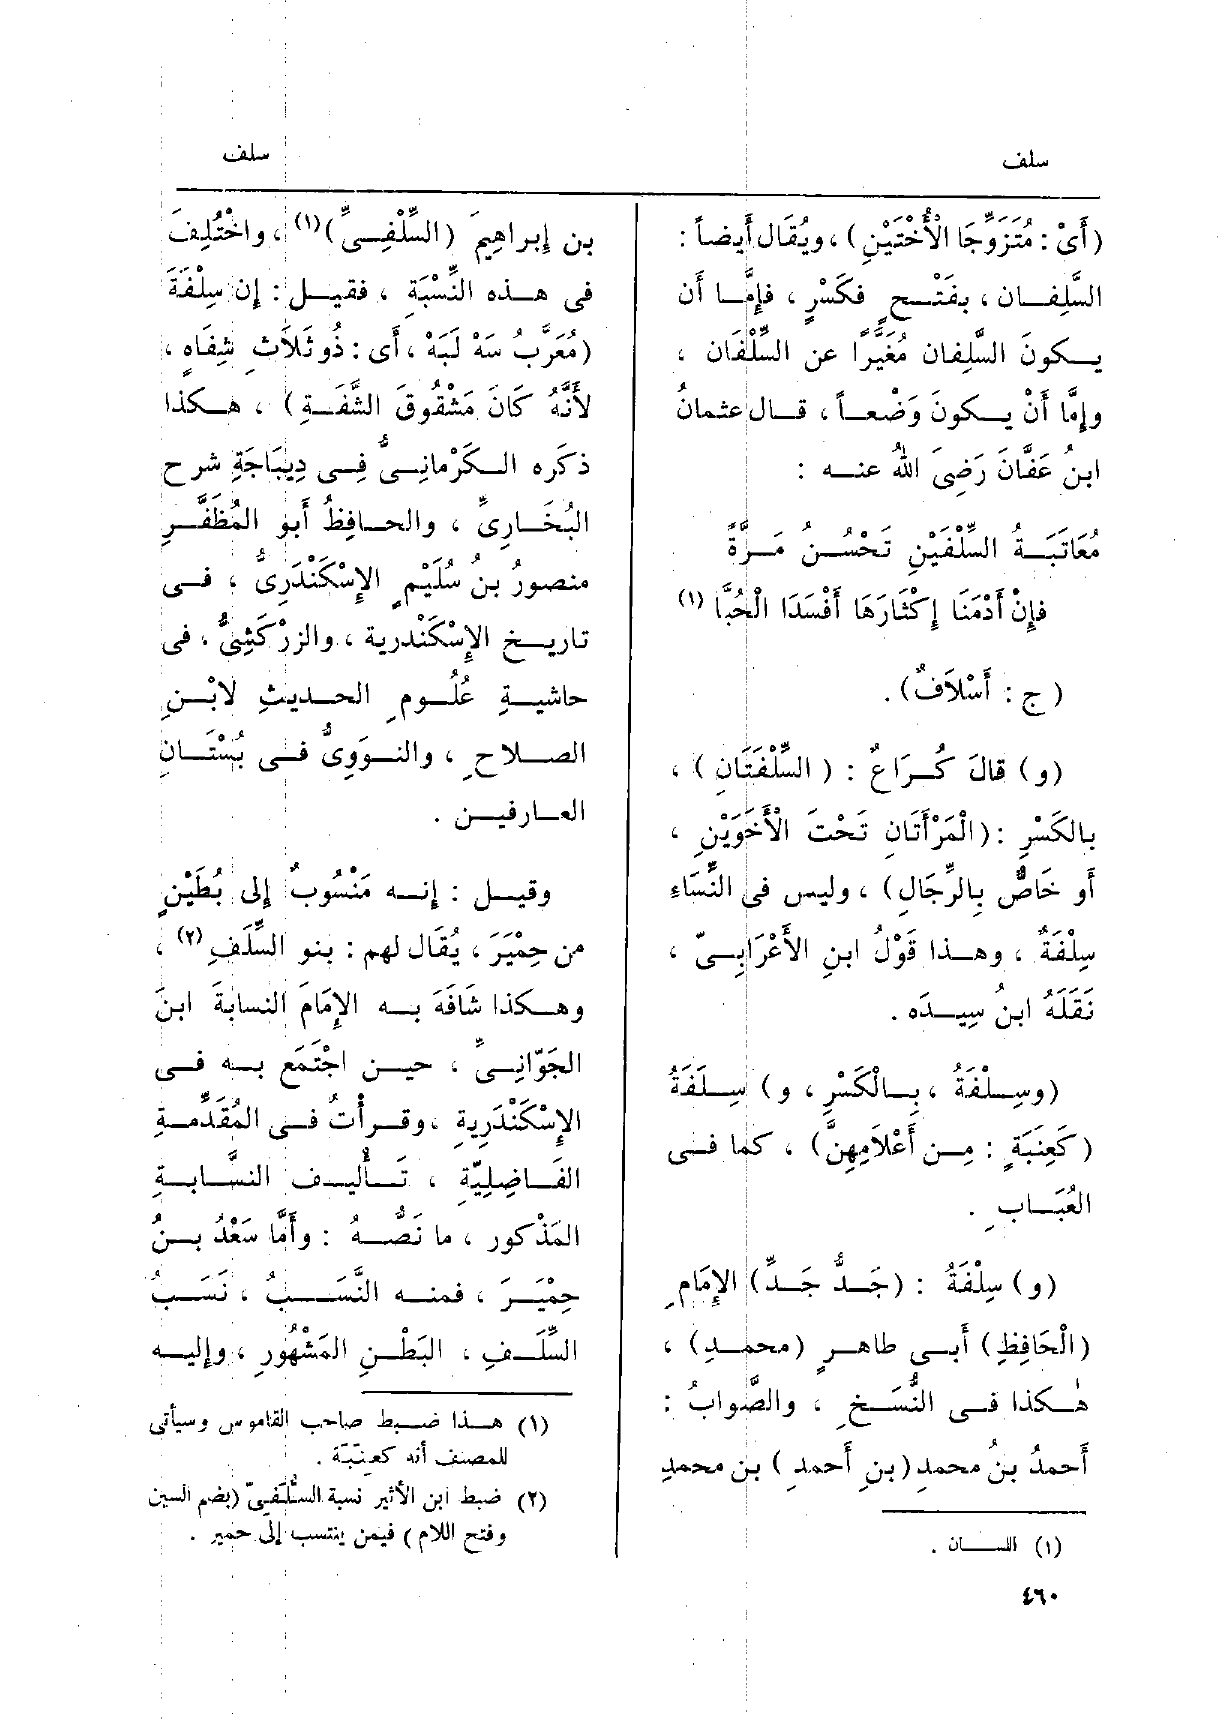 سلف
سلف
(أَىْ : مُتَزَوِّجَا الْأُخْتَيْنِ) ، ويُقَال أَيضاً :
السَّلِفـان ، بفَتْـحٍ فكَسْرٍ ، فإِمَّـا أَن
يـكونَ السَّلِفان مُغَيَّرًا عن السِّلْفَان ،
وإِمَّا أَنْ يـكونَ وَضْعـاً ، قـال عثمانُ
ابنُ عَفَّانَ رَضِىَ اللهُ عنـه :
مُعَاتَبَـةُ السِّلْفَيْنِ تَحْسُـنُ مَـرَّةً
فإِنْ أَدْمَنَا إِكْثَارَهَا أَفْسَدَا الْحُبَّا (١)
( ج : أَسْلَافٌ) .
(و) قالَ كُـرَاعٌ : ( السِّلْفَتَانِ ) ،
بالكَسْرِ : (الْمَرْأَتَانِ تَحْتَ الْأَخَوَيْنِ ،
أَو خَاصٌّ بِالرِّجَالِ) ، وليس فى النِّسَاءِ
سِلْفَةٌ ، وهـذا قَوْلُ ابنِ الأَعْرَابِـىّ ،
نَقَلَهُ ابنُ سِيـدَه .
(وسِـلْفَةُ ، بـالْكَسْرِ ، و) سِـلَفَةُ
(كَعِنَبَةٍ : مِـن أَعْلَامِهِنَّ) ، كما فـى
العُبَـابِ .
(و) سِلْفَةُ : (جَـدُّ جَـدِّ) الإِمَامِ
(الْحَافِظِ) أَبـى طاهـرٍ (محمـدٍ) ،
هٰـكذا فـى النُّسَـخِ ، والصَّوابُ :
أَحمدُ بنُ محمدِ (بنِ أَحمدِ ) بنِ محمدِ
(١) اللسـان .
بن إِبراهِيمَ (السِّلْفِـىُّ)(١) ، واخْتُلِفَ
فى هـذه النِّسْبَةِ ، فقيـل : إِن سِلْفَةَ
(مُعَرَّبُ سَهْ لَبَهْ ، أَى : ذُو ثَلَاثِ شِفَاهٍ ،
لأَنَّهُ كَانَ مَشْقُوقَ الشَّفَـةِ) ، هـكذا
ذكره الـكَرْمانِـىُّ فِـى دِيبَاجَةِ شرح
البُخَـارِىِّ ، والحـافِظُ أَبو المُظَفَّـرِ
منصورُ بنُ سُلَيْمٍ الإِسْكَنْدَرِىُّ ، فـى
تاريـخ الإِسْكَنْدرية ، والزرْكَشِىُّ ، فى
حاشيـةِ عُلُـومِ الحـديثِ لابْـنِ
الصـلاحِ ، والنـوَوِىُّ فـى بُسْتَـانِ
العـارفيـن .
وقيـل : إِنـه مَنْسُوبٌ إِلى بُطَيْنٍ
من حِمْيَرَ ، يُقَال لهم : بنو السِّلَفِ (٢) ،
وهـكذا شَافَهَ بـه الإِمَامَ النسابةَ ابنَ
الجَوّانِـىِّ ، حيـن اجْتَمَع بـه فـى
الإِسْكَنْدَرِيةِ ، وقـرأْتُ فـى المُقَدِّمـةِ
الفَـاضِلِيَّةِ ، تَـأْليـف النسَّابـةِ
المَذْكور ، ما نَصُّـهُ : وأَمَّا سَعْدُ بـنُ
حِمْيَـرَ ، فمنـه النَّسَـبُ ، نَسَـبُ
السِّلَـفِ ، البَطْـنِ المَشْهُورِ ، وإِليـه
(١) هـذا ضـبط صاحب القاموس وسيأتى
للمصنف أنه كعِنَبَة .
(٢) ضبط ابن الأثير نسبة السُّلَفىّ (بضم السين
وفتح اللام ) فيمن ينتسب إلى حمير .
٤٦٠